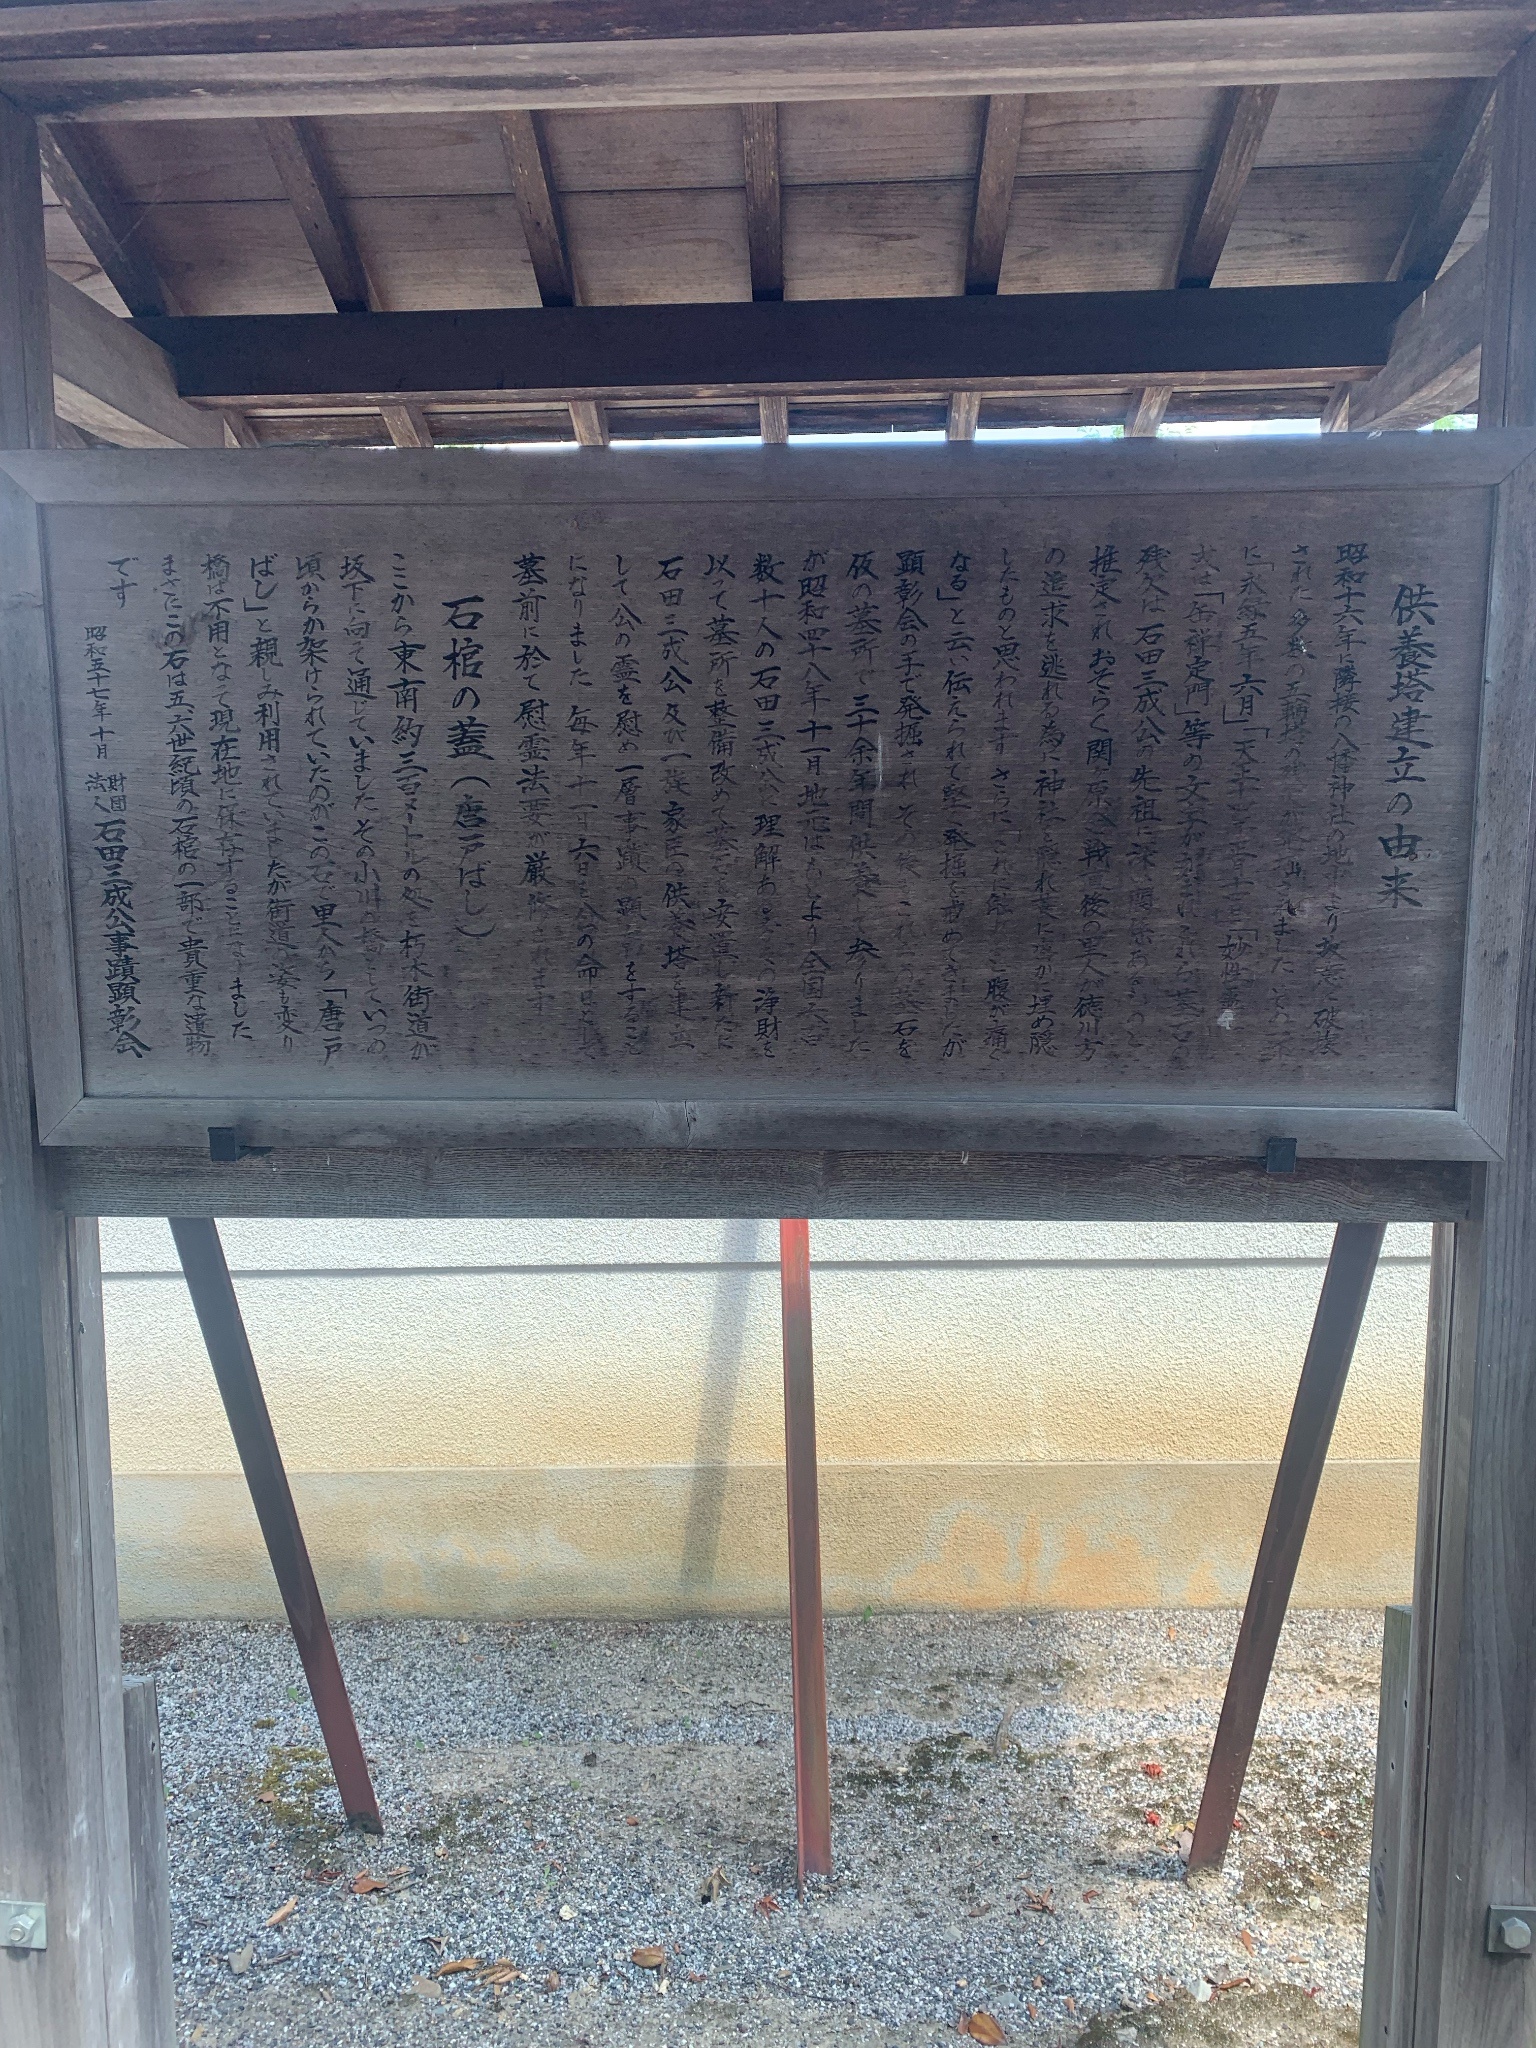 供養塔建立の由来
昭和十六年に隣接の八幡神社の地中より故意に破壊
された多数の五輪塔の
に「永禄五年六月」「天正
」等の文字が
残欠は石田三成公の先祖に深い関係あるものと
推定されおそらく関ヶ原合戦直後の里人が徳川方
の追求を逃れる為に神社を隠れ蓑に密かに埋め隠
したものと思われます さらに「これに触れると腹が痛く
なる」と云い伝えられて堅く発掘を戒めてきましたが
顕彰会の手で発掘され その後 これらの墓石を
仮の墓所で三十余年間供養して参りました
が昭和四十八年十一月地元はもとより全国各地
数十人の石田三成公に理解ある方々の浄財を
以って墓所を整備改めて墓石を安置し新たに
石田三成公及び一族 家臣の供養塔を建立
して 公の霊を慰め一層事蹟の顕彰をすること
になりました 毎年十一月六日を公の命日として
墓前に於て慰霊法要が厳修されます
石棺の蓋(唐戸ばし)
ここから東南約三百メートルの処を朽木街道が
坂下に向て通じていました その小川の橋としていつの
頃からか架けられていたのがこの石で里人から「唐戸
ばし」と親しみ利用されていましたが街道の姿も変り
橋は不用となって現在地に保存することになりました
まさにこの石は五、六世紀頃の石棺の一部で貴重な遺物
です
昭和五十七年十月 財団法人 石田三成公事蹟顕彰会